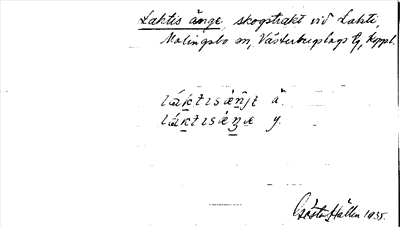 Laktis änge, skogstrakt vid Lakti,
Malingsbo sn, Västerbergslags
láktɪsæ̀ŋjɛ ä.
láktɪsæ̀ŋɛ y.
Gösta Hällen 1935.